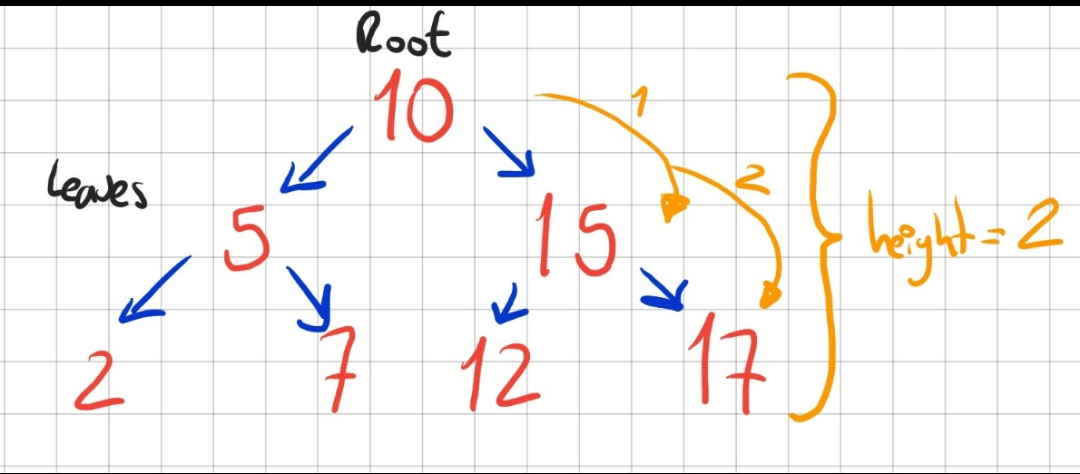 Root
10
1
Leaves
2
5
15
height = 2
2
7
12
17